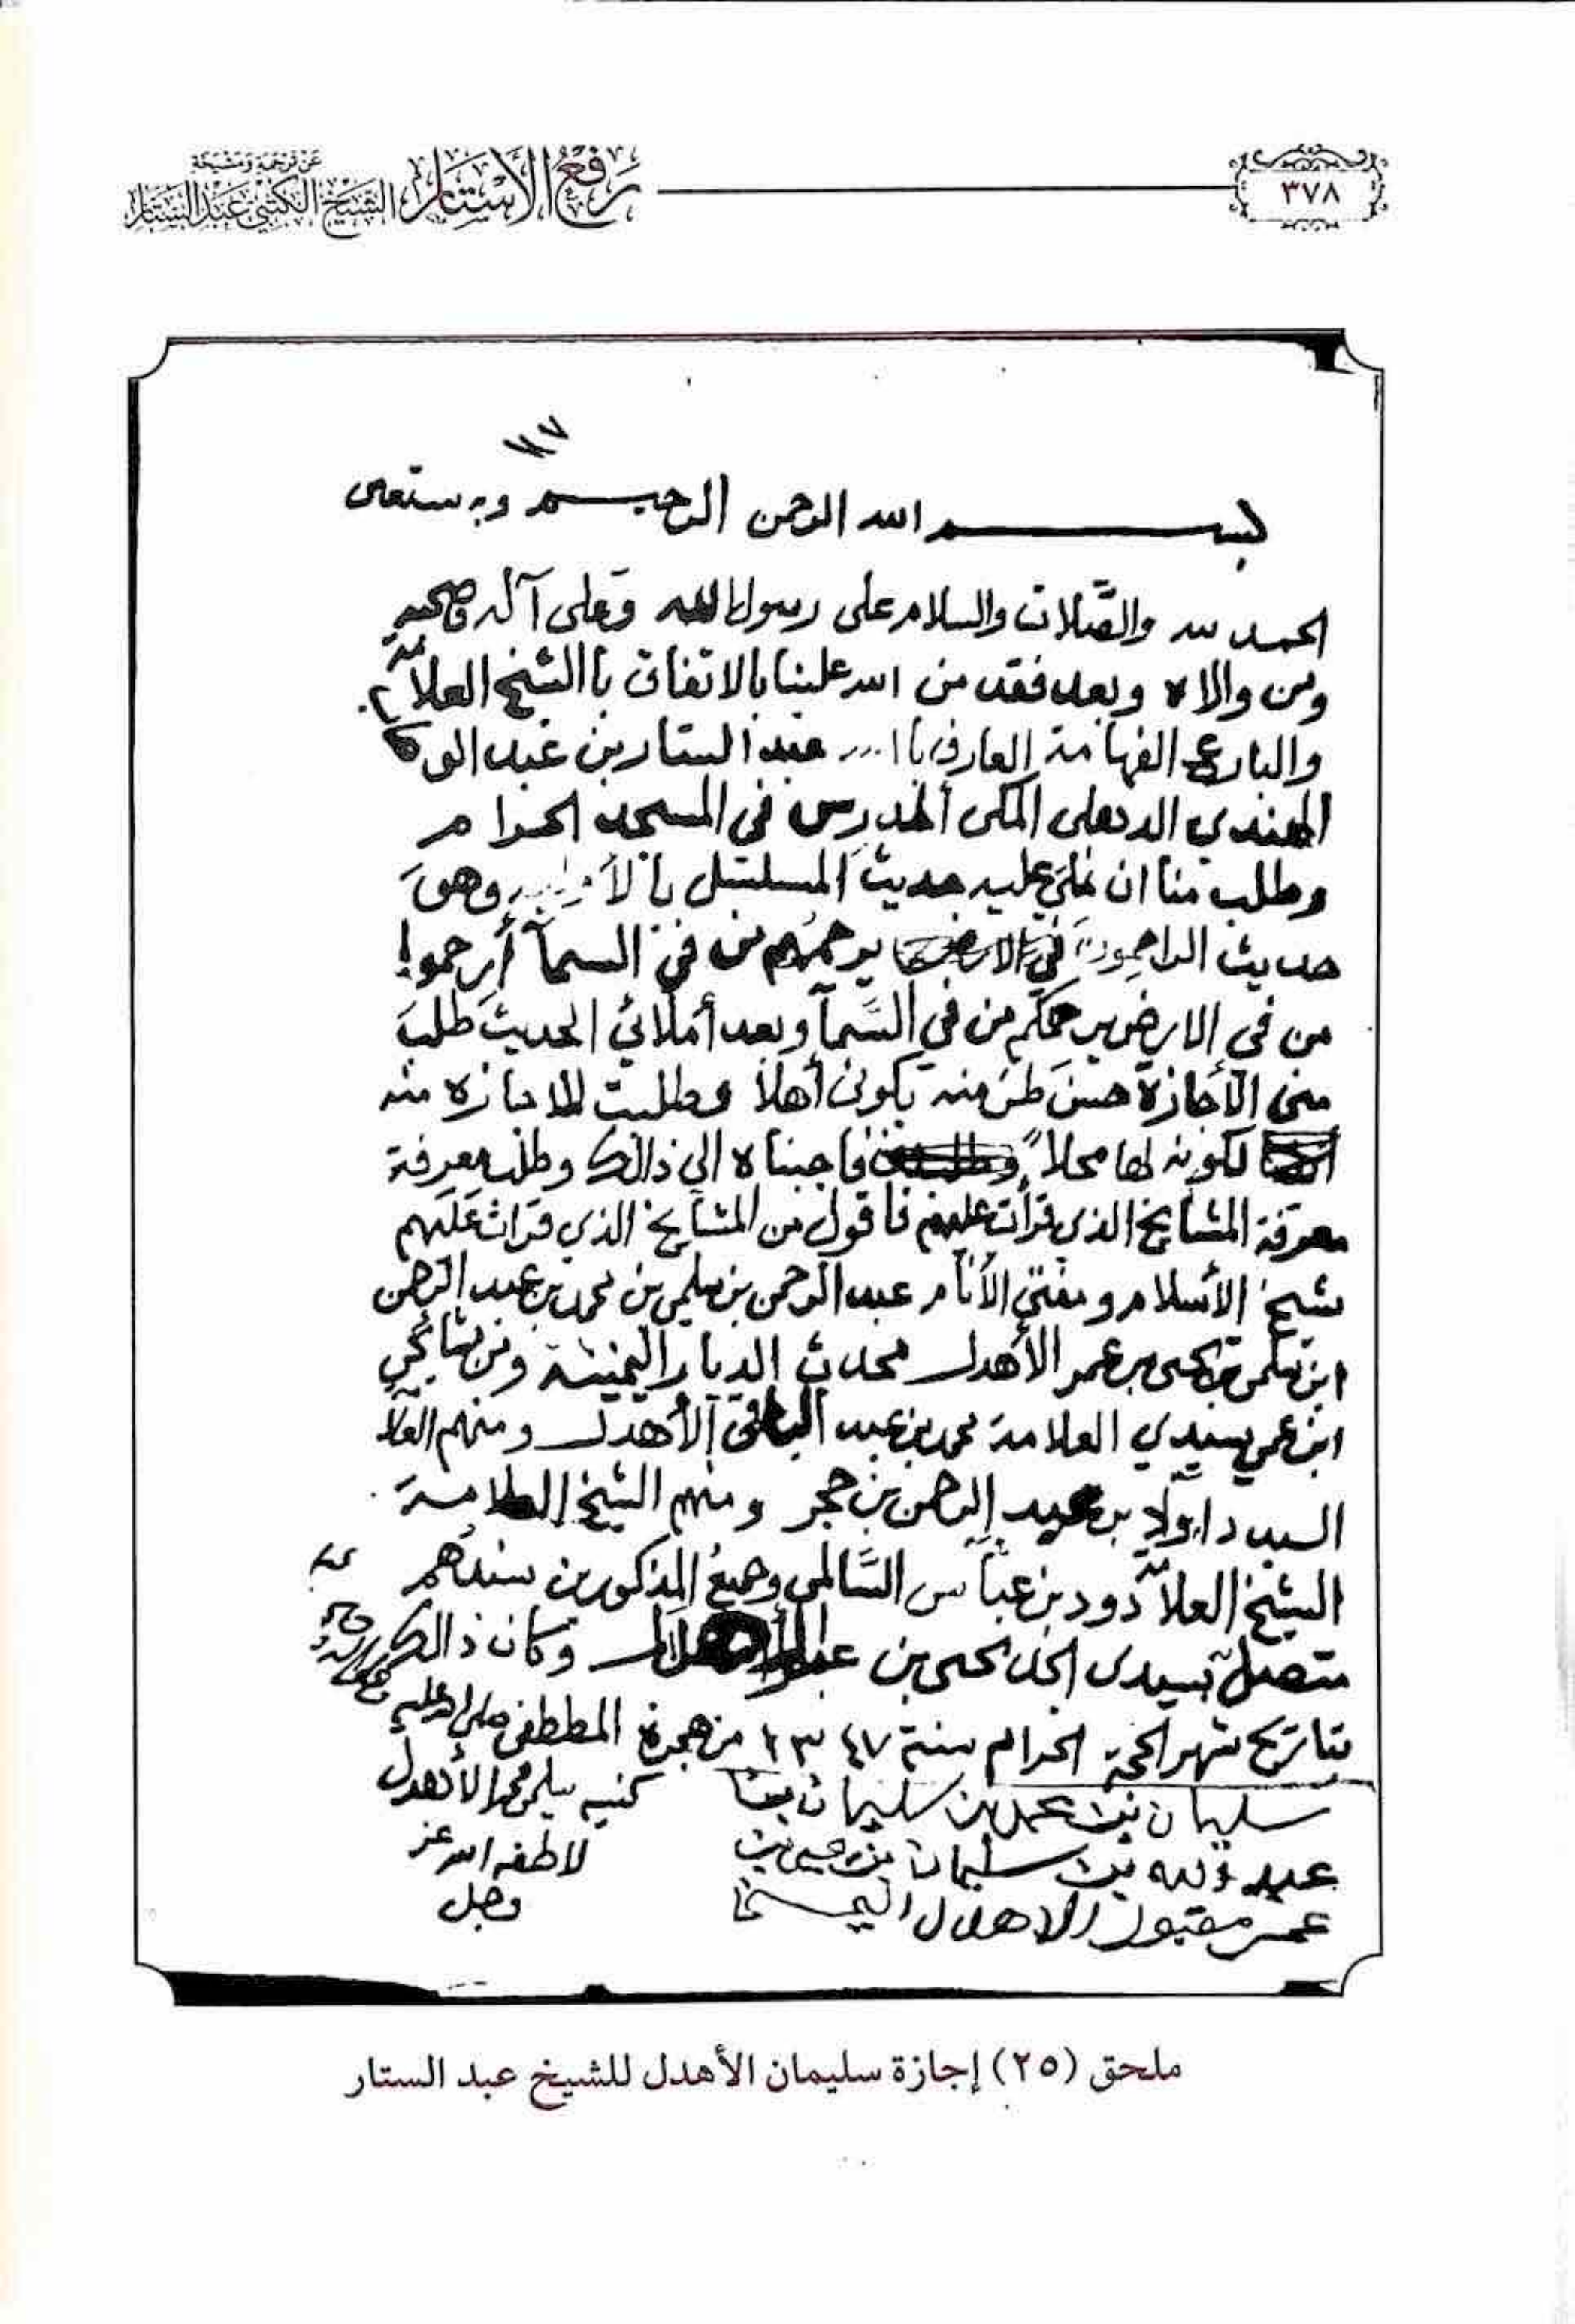 ٣٧٨
رفع الأستار
عن ترجمة ومشيخة
الشيخ الكتبي عبد الستار
١١٧
بسم الله الرحمن الرحيم وبه ستعين
الحمد لله والصَّلات والسلام على رسول الله وعلى آله وصحبه
ومن والاه وبعد فقد من الله علينا بالاتفاق باالشيخ العلامة
والبارع الفهامة العارف با عبد الستار بن عبد الوها
الهندي الدهلى المكى المدرس في المسجد الحرام
وطلب منا ان نملي عليه حديث المسلسل بالأ وهو
حديث الراحمون في الارض يرحمهم من في السمآ أرحموا
من في الارض يرحمكم من في السَّمآ وبعد أملائي الحديث طلب
منى الأجازة حسن ظن منه بكونى أهلاً وطلبت الاجازة منه
لكونه لها محلاً فاجبناه الى ذالك وطلب معرفة
معرفة المشايخ الذي قرأت عليهم فاقول من المشايخ الذي قرات عليهم
شيخ الأسلام ومفتي الأنام عبد الرحمن بن سليمن بن محمد بن عبد الرحمن
ابن سليمن بن يحيى بن عمر الأهدل محدث الديار اليمنية ومن مشائخي
ابن عمي سيدي العلامة محمد بن عبد الباقي الأهدل ومنهم العلا
السيد بن عبد الرحمن بن حجر ومنهم الشيخ العلامة
الشيخ العلامة دود بن عباس السَّالمي وجميع المذكورين سندهم
متصل بسيدى الجد يحيى بن وكان ذالك
بتاريخ شهر الحجة الحرام سنة ١٣٤٧ من هجرة المططفى صلى الله عليه
سليمان بن محمد بن سليمان بن
عبد الله بن سليمان بن يحيى بن
عمر مقبول الاهدل
كتبه سليمن محمد الأهدل
لاطفه الله عز
وجل
ملحق (٢٥) إجازة سليمان الأهدل للشيخ عبد الستار